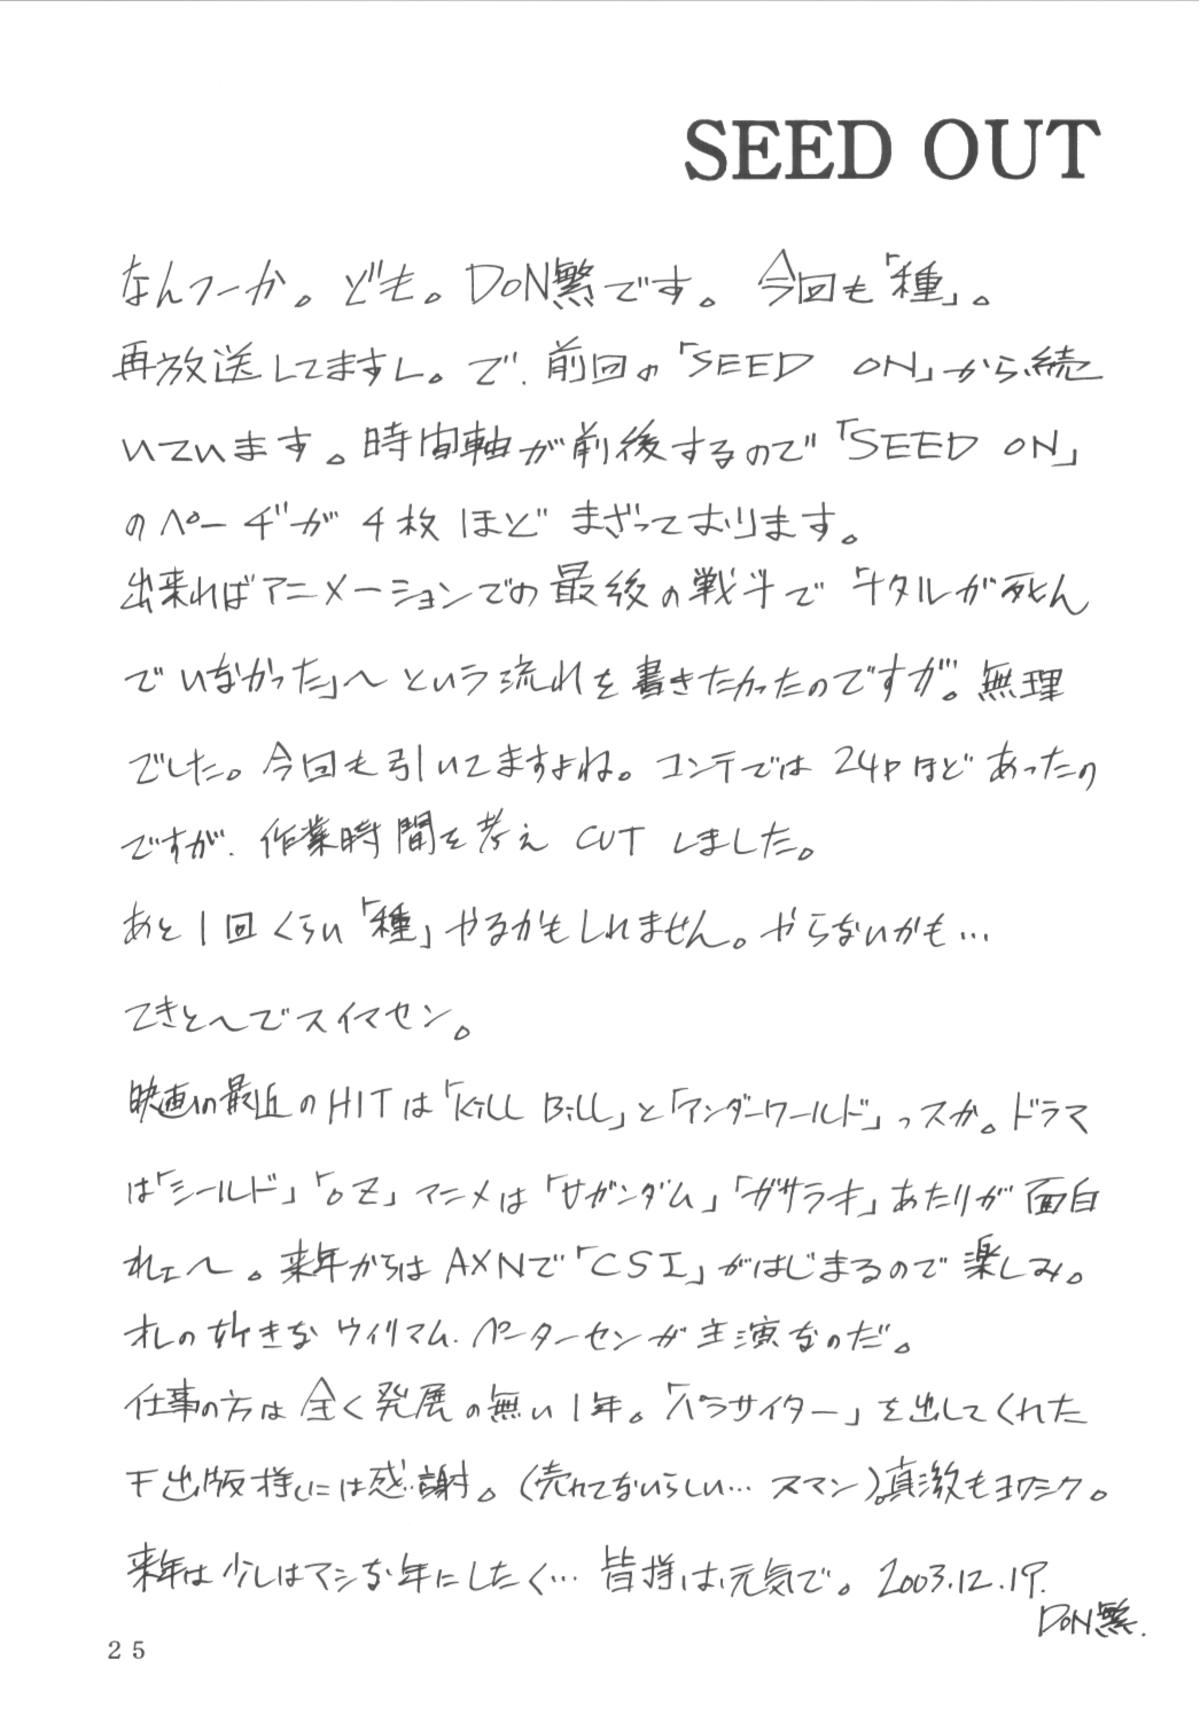 SEED OUT
なんつーか。ども。DON繁です。今回も「種」。
再放送してますし。で、前回の「SEED ON」から続
いています。時間軸が前後するので「SEED ON」
のページが4枚ほどまざっております。
出来ればアニメーションでの最後の戦斗で「キタルが死ん
でいなかった」〜という流れを書きたかったのですが。無理
でした。今回も引いてますよね。コンテでは24Pほどあったの
ですが、作業時間を考えCUTしました。
あと1回くらい「種」やるかもしれません。やらないかも…
てきと〜でスイマセン。
映画の最近のHITは「Kill Bill」と「アンダーワールド」っスか。ドラマ
は「シールド」「OZ」アニメは「∀ガンダム」「ガサラキ」あたりが面白
れェ〜。来年からはAXNで「CSI」がはじまるので楽しみ。
オレの好きなウイリアム・ペーターセンが主演なのだ。
仕事の方は全く発展の無い1年。「パラサイター」を出してくれた
出版様には感謝。(売れてないらしい…スマン)。真激もヨロシク。
来年は少しはマシな年にしたく…皆様は元気で。2003.12.19.
DON繁.
25